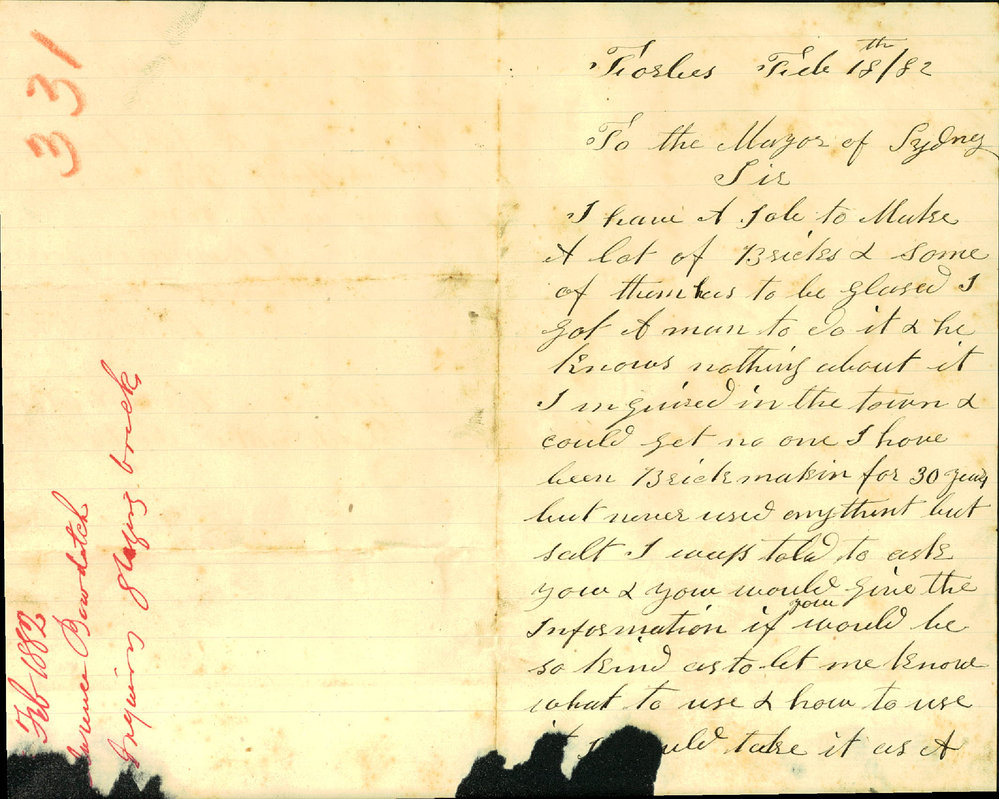 331
Feb 1882
Bowditch
Inquiring glazing brick
Forbes Feb 18th/82
To the Mayor of Sydney
Sir
I have A Job to Make
A lot of Bricks & some
of them has to be glased I
got A man to do it & he
knows nothing about it
I inguired in the town &
could get no one I have
been Brickmakin for 30 years
but never used anythint but
salt I wass told to ask
you & you would give the
Information if you would be
so kind as to let me know
what to use & how to use
it I take it as A